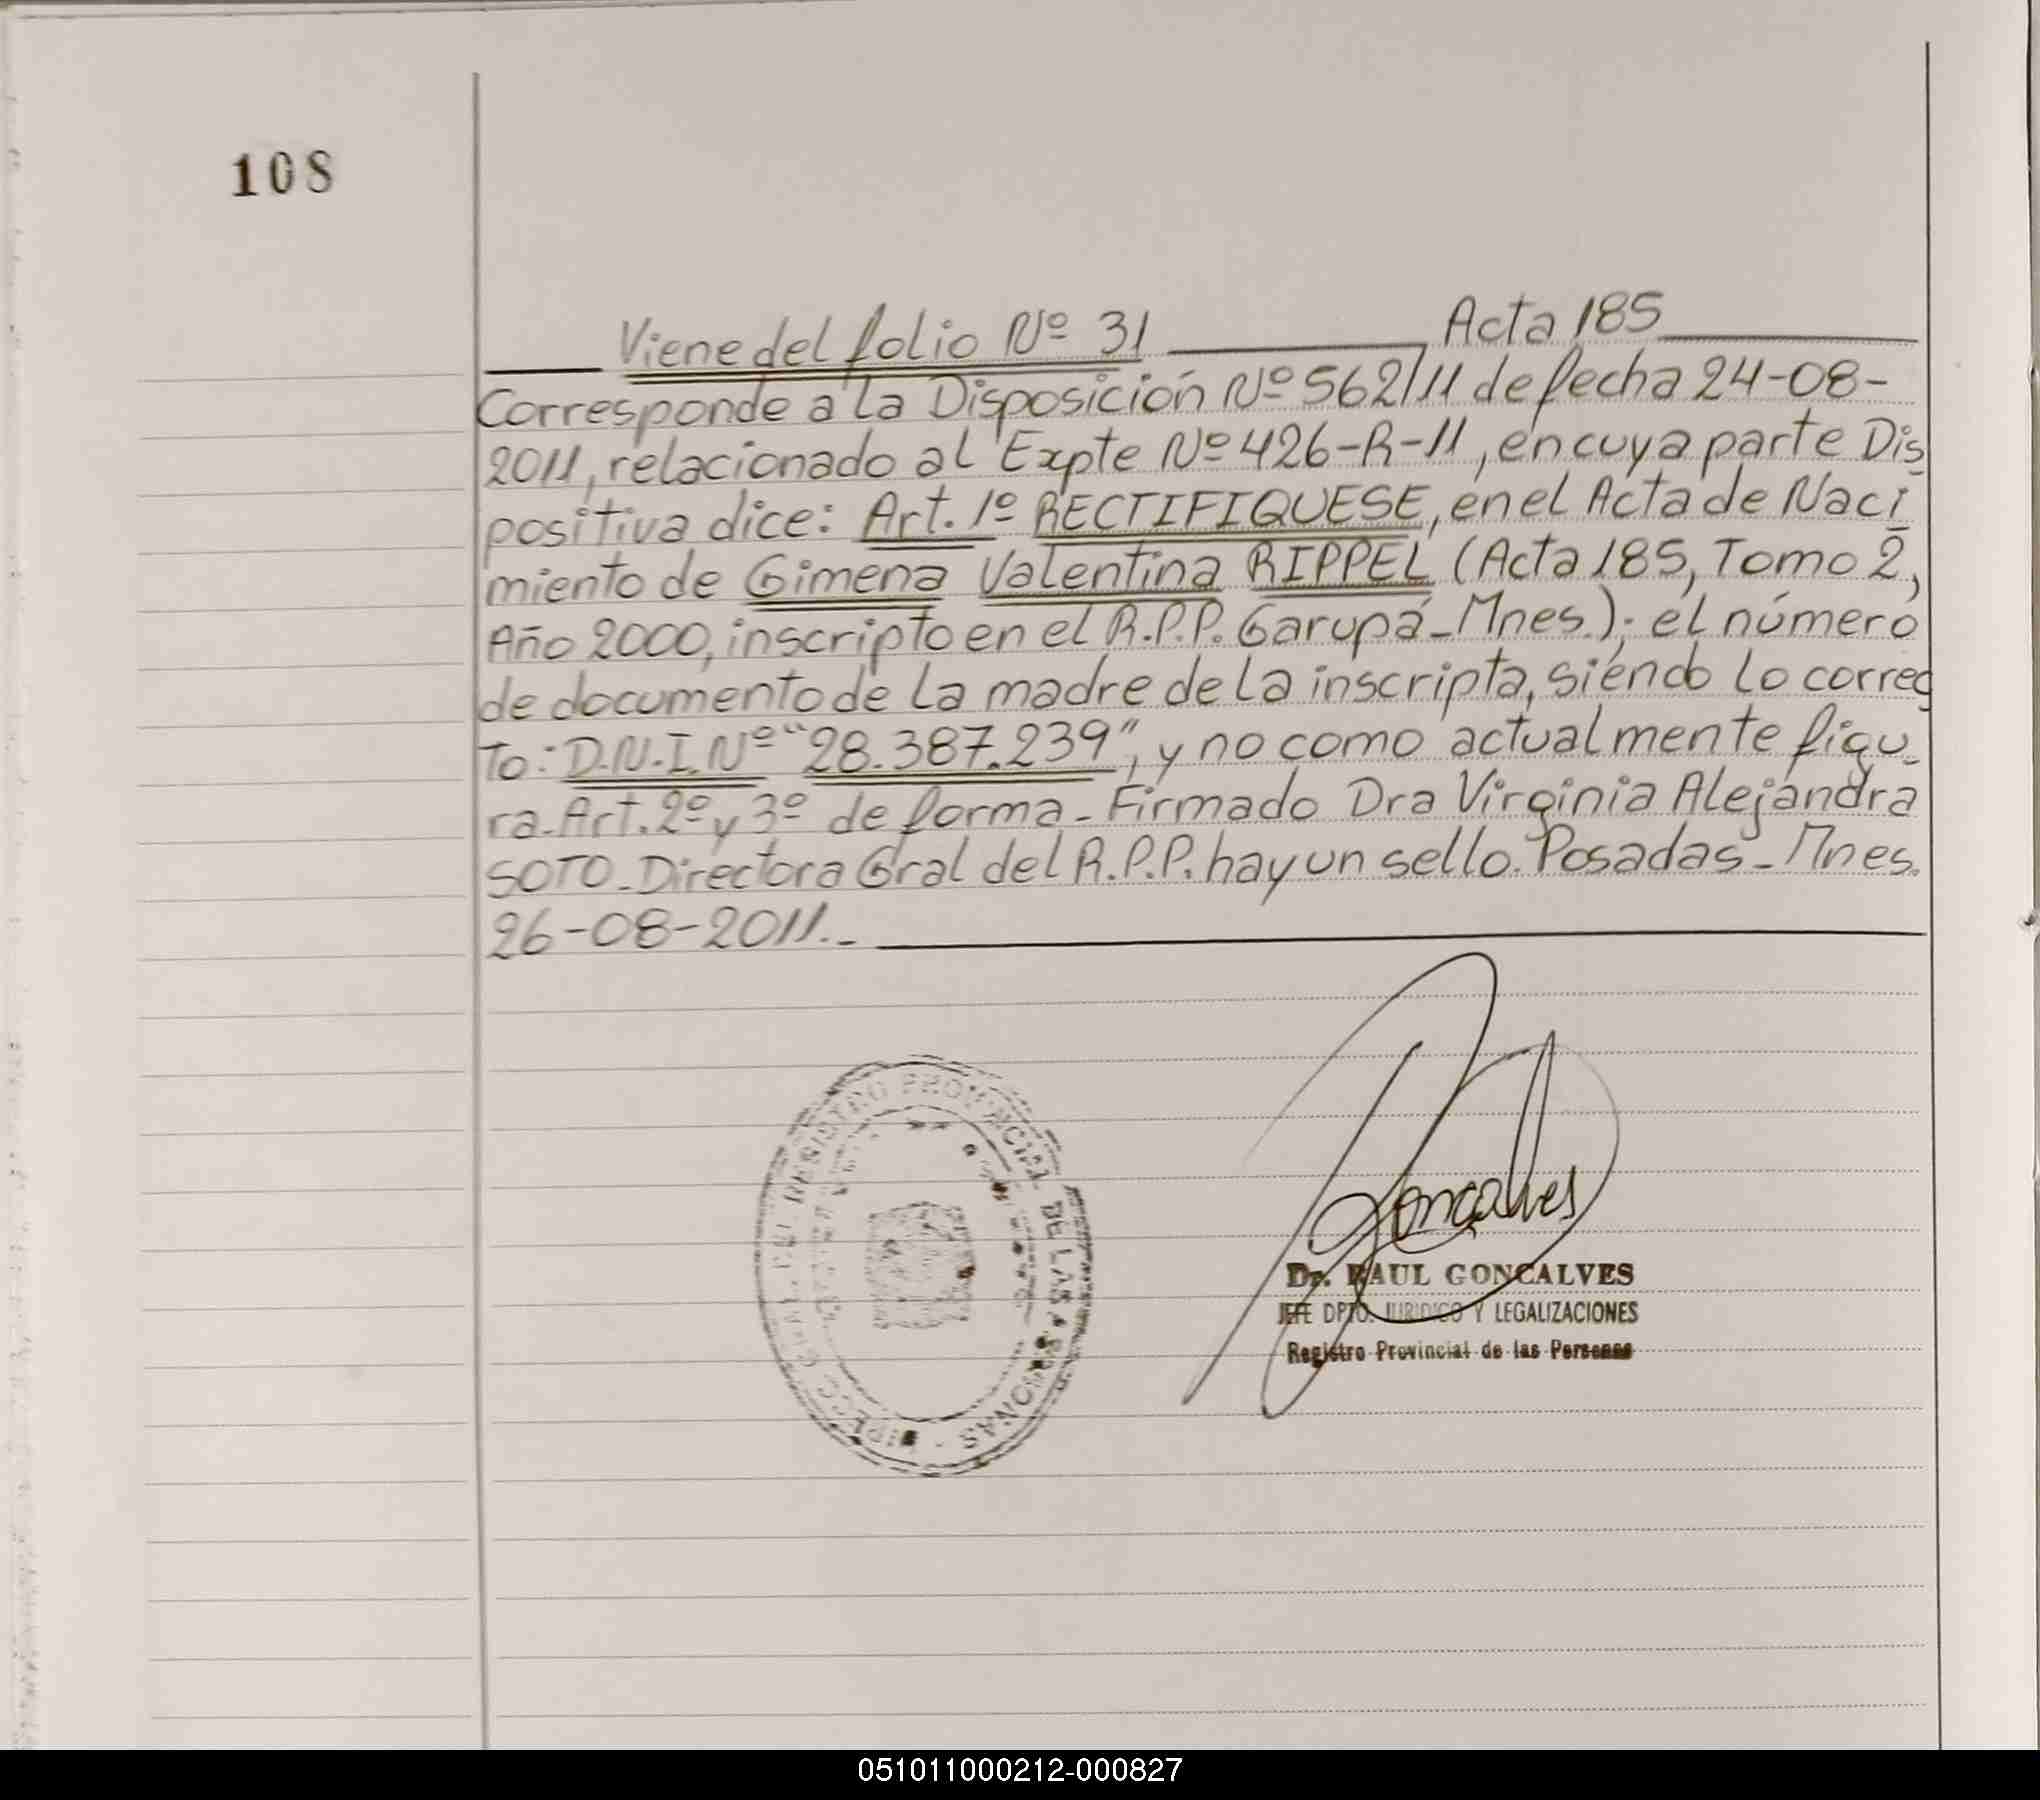 108
Viene del folio Nº 31 Acta 185
Corresponde a la Disposición Nº 562/11 de fecha 24-08-
2011, relacionado al Expte Nº 426-R-11, en cuya parte Dis
positiva dice: Art. 1º RECTIFIQUESE, en el Acta de Naci
miento de Gimena Valentina RIPPEL (Acta 185, Tomo 2,
Año 2000, inscripto en el R.P.P. Garupá-Mnes.); el número
de documento de la madre de la inscripta, siendo lo correc
to: D.N.I. Nº "28.387.239", y no como actualmente figu
ra. Art. 2º y 3º de forma - Firmado Dra Virginia Alejandra
SOTO - Directora Gral del R.P.P. hay un sello. Posadas - Mnes.
26-08-2011.-
REGISTRO PROVINCIAL DE LAS PERSONAS
Goncalves
Dr. RAUL GONCALVES
JEFE DPTO. JURIDICO Y LEGALIZACIONES
Registro Provincial de las Personas
051011000212-000827